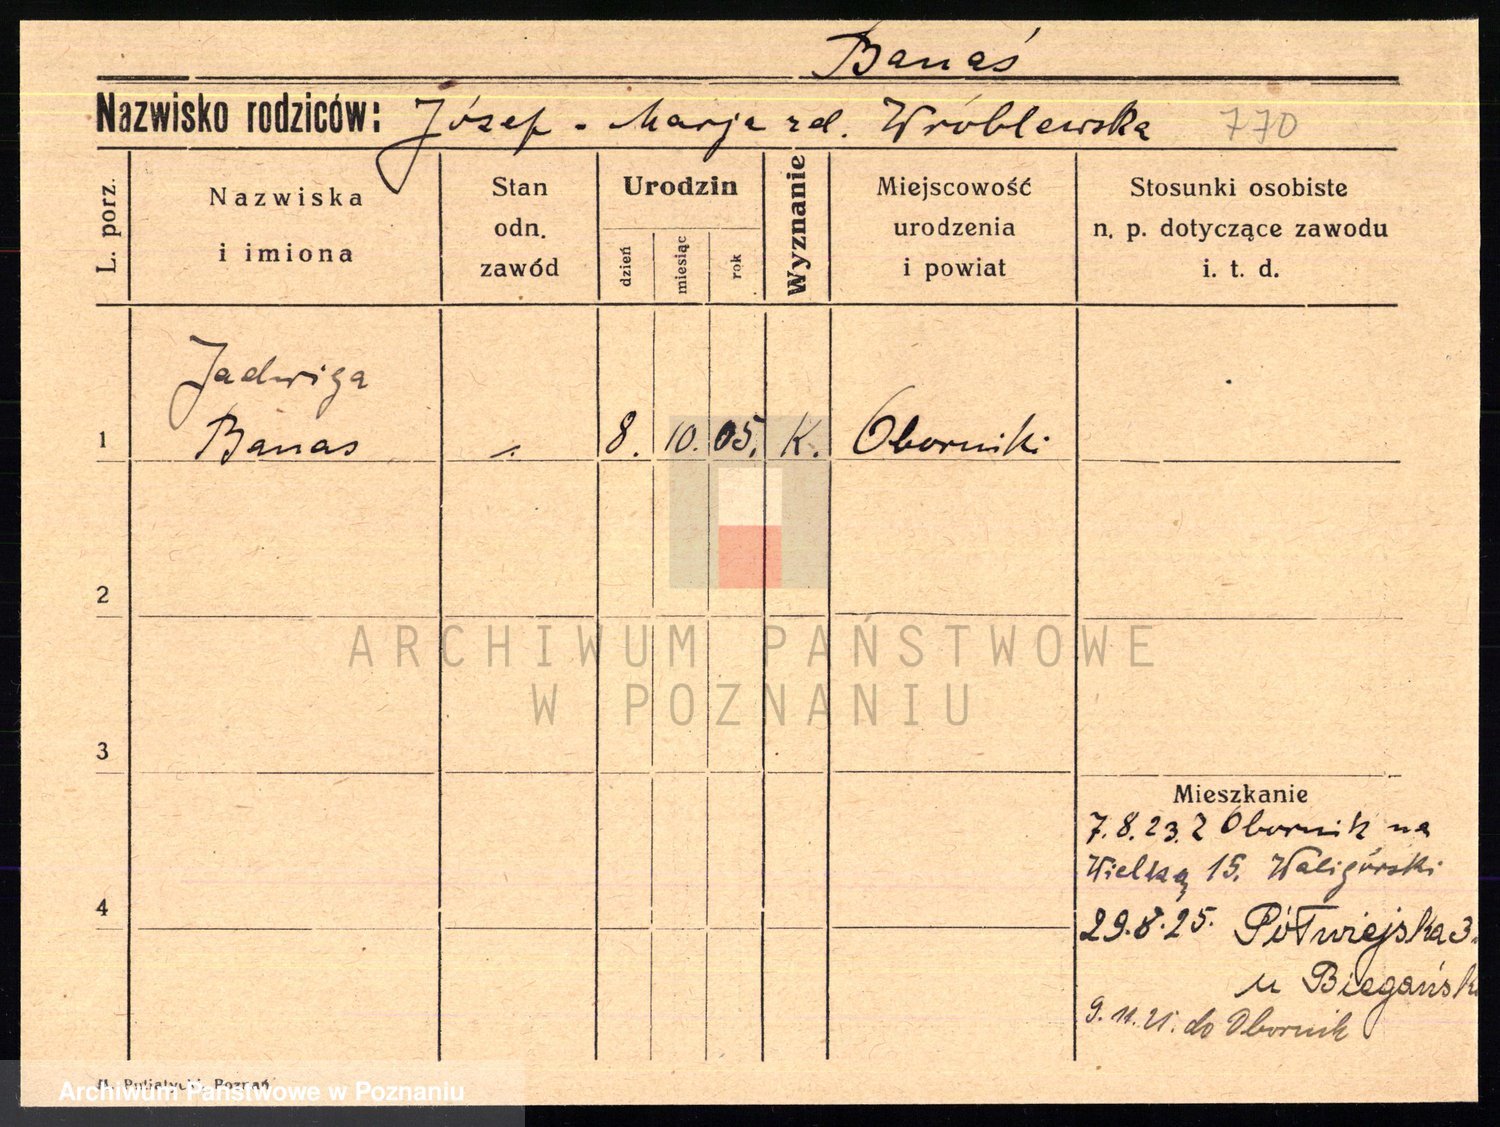 Banaś
Nazwisko rodziców: Józef - Marja zd. Wróblewska 770
L. porz.
Nazwiska
i imiona
Stan
odn.
zawód
Urodzin
dzień
miesiąc
rok
Wyznanie
Miejscowość
urodzenia
i powiat
Stosunki osobiste
n. p. dotyczące zawodu
i. t. d.
Jadwiga
1 Banas - 8. 10. 05. K. Oborniki
2
3
4
Mieszkanie
7.8.23. z Obornik na
Wielką 15. Waligórski
29.8.25. Półwiejska 3.
u Biegańsk
9.11.25. do Obornik
ARCHIWUM PAŃSTWOWE
W POZNANIU
Putiatycki, Poznań
Archiwum Państwowe w Poznaniu